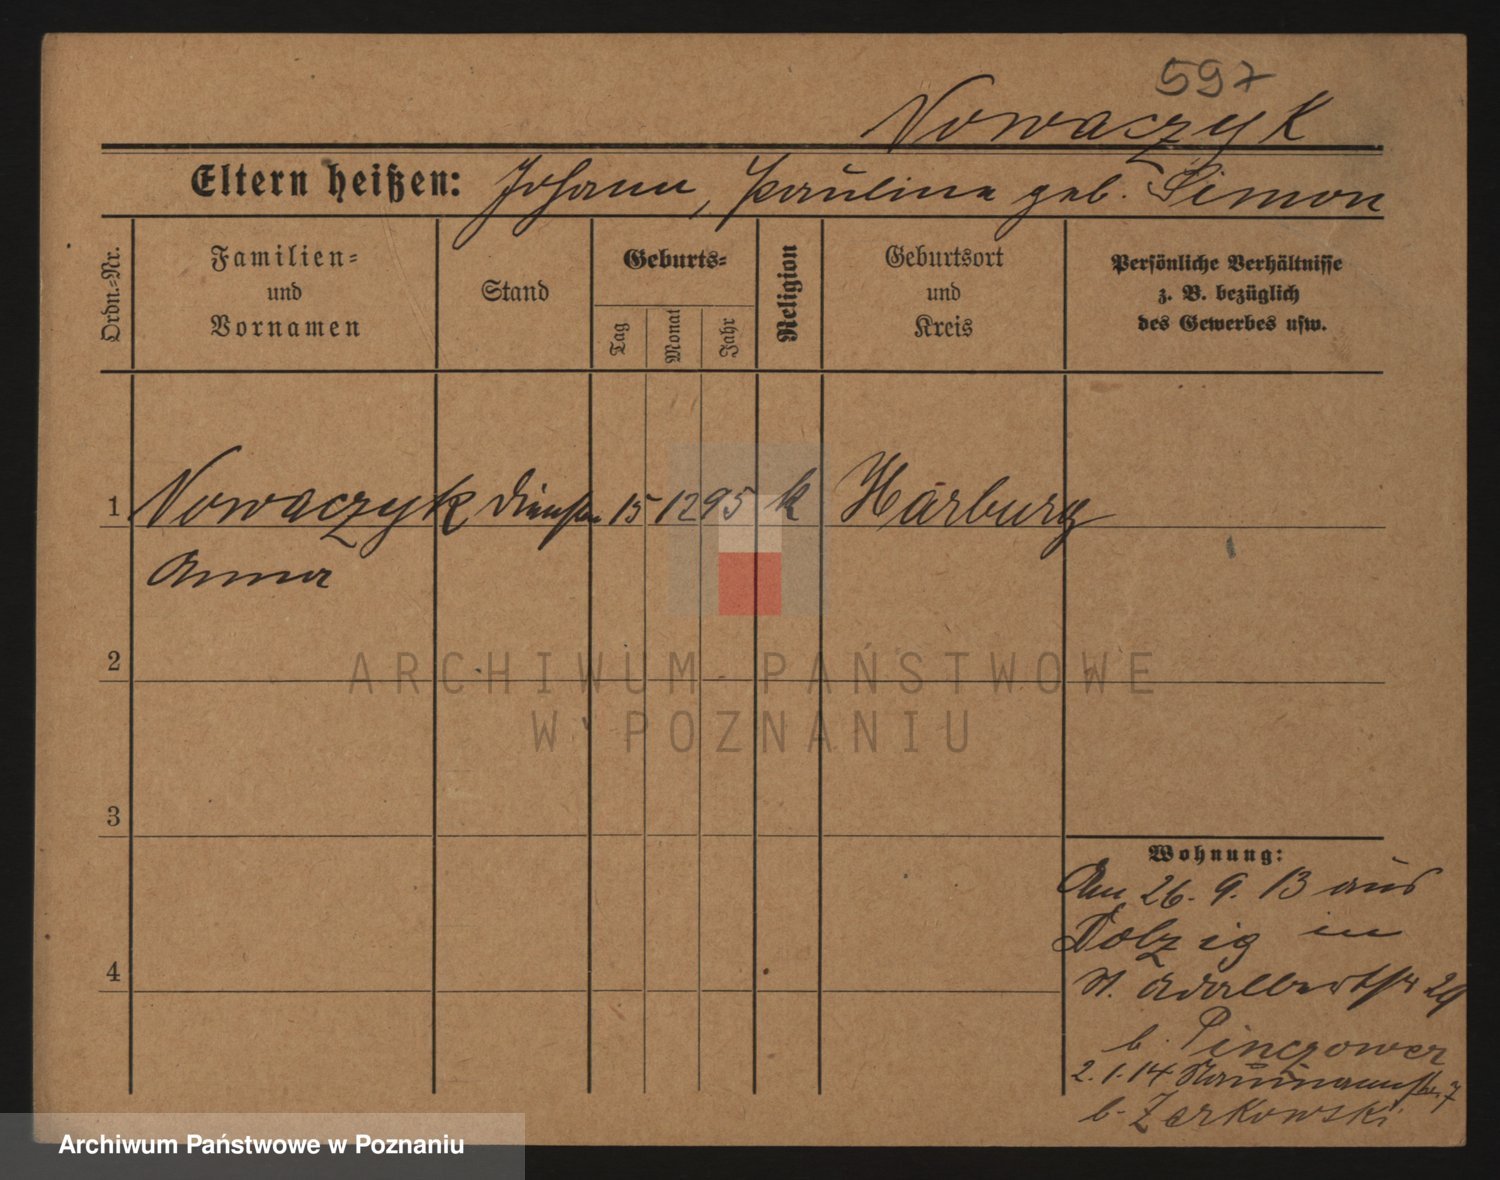 597
Nowaczyk
Eltern heißen: Johann, Paulina geb. Simon
Ordn.-Nr.
Familien-
und
Vornamen
Stand
Geburts-
Tag
Monat
Jahr
Religion
Geburtsort
und
Kreis
Persönliche Verhältnisse
z. B. bezüglich
des Gewerbes usw.
1 Nowaczyk 15 12 95 k Harburg
Anna
2
3
4
Wohnung:
Am 26. 9. 13 aus
Dolzig in
St. Adalbertstr 29
b. Pinczower
2. 1. 14 Naumannstr. 7
b. Zarkowski
ARCHIWUM PAŃSTWOWE
W POZNANIU
Archiwum Państwowe w Poznaniu